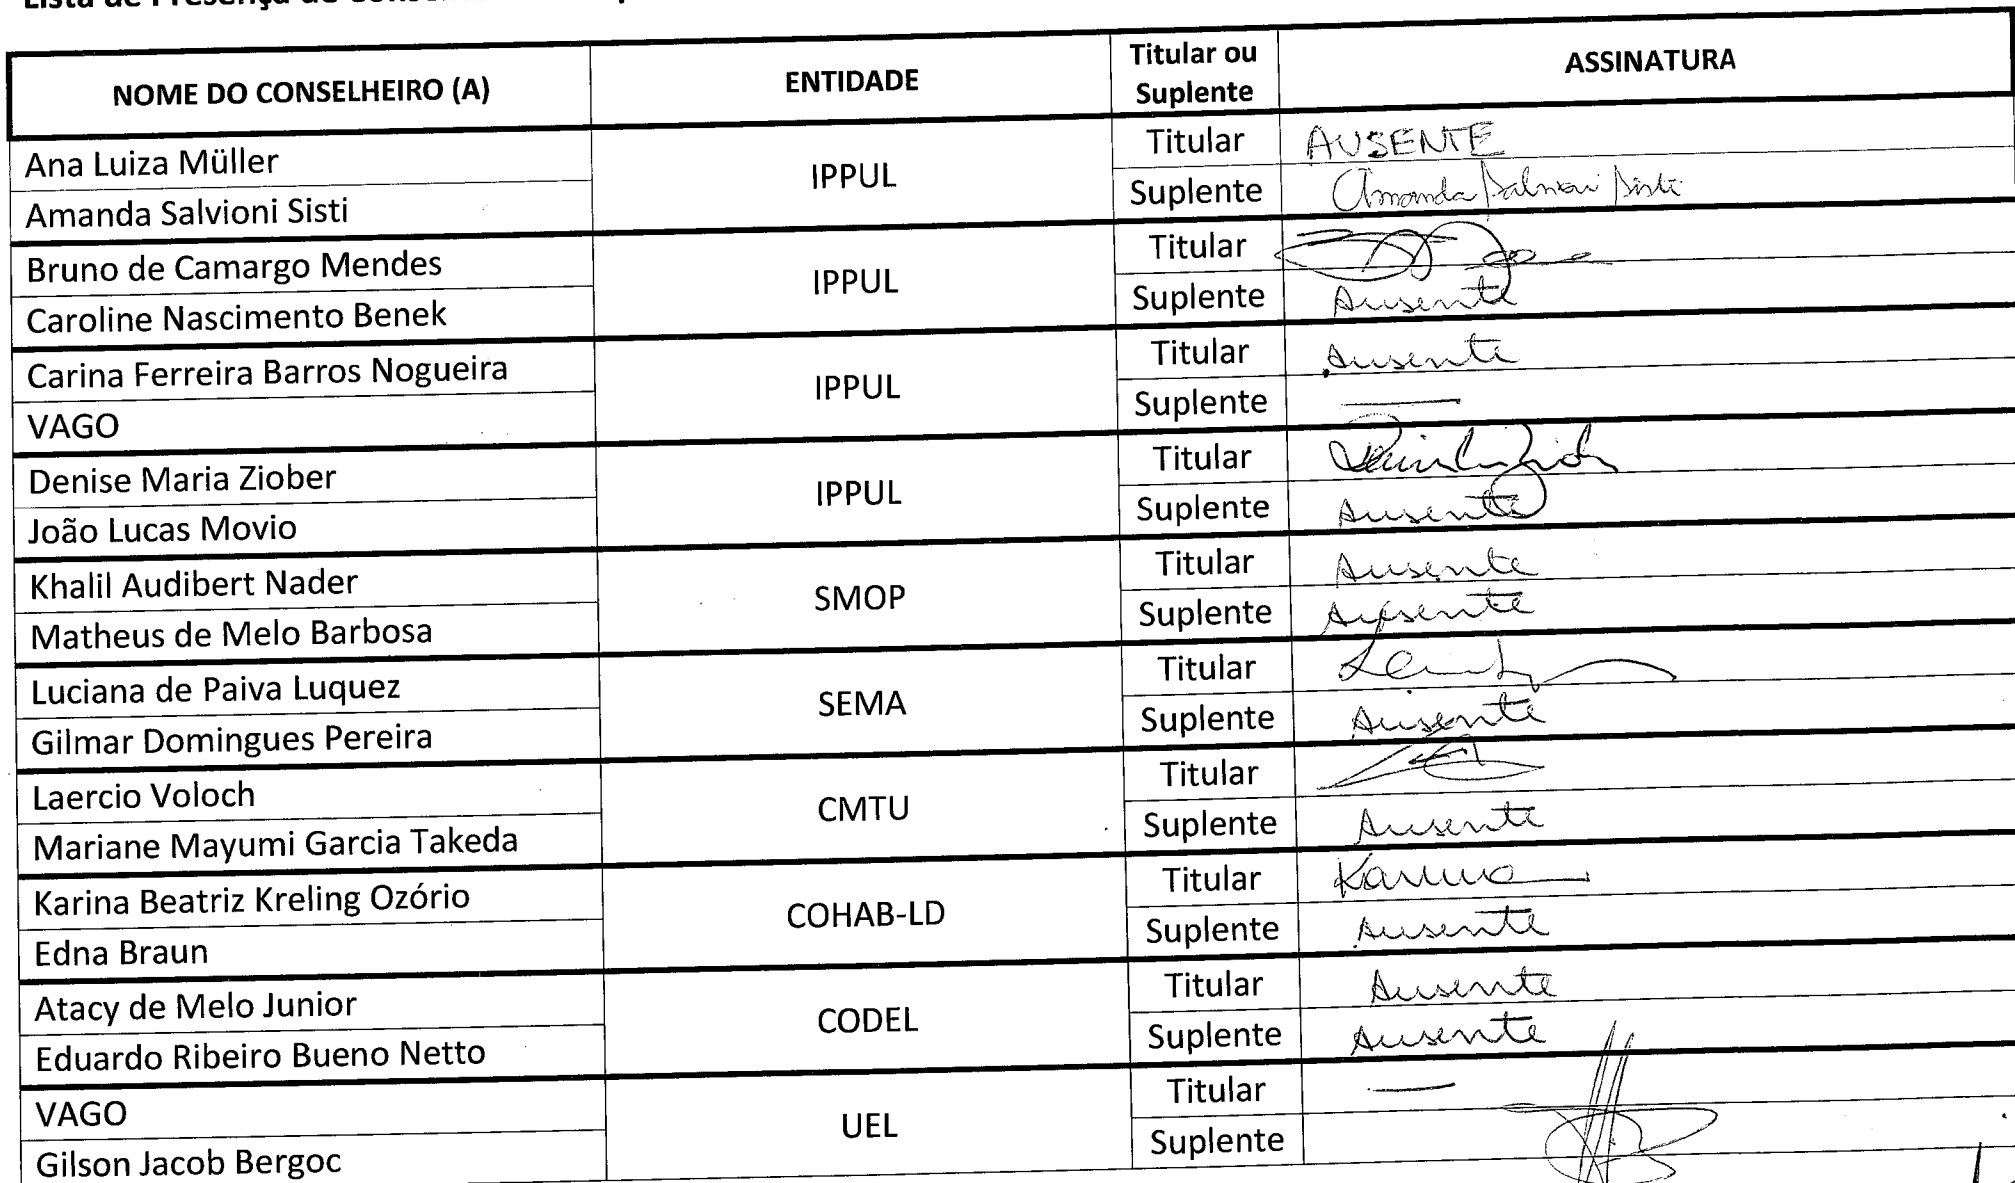 Lista de Presença de
NOME DO CONSELHEIRO (A) ENTIDADE Titular ou Suplente ASSINATURA
Ana Luiza Müller IPPUL Titular AUSENTE
Amanda Salvioni Sisti Suplente Amanda Salvioni Sisti
Bruno de Camargo Mendes IPPUL Titular
Caroline Nascimento Benek Suplente Ausente
Carina Ferreira Barros Nogueira IPPUL Titular Ausente
VAGO Suplente —
Denise Maria Ziober IPPUL Titular
João Lucas Movio Suplente Ausente
Khalil Audibert Nader SMOP Titular Ausente
Matheus de Melo Barbosa Suplente Ausente
Luciana de Paiva Luquez SEMA Titular
Gilmar Domingues Pereira Suplente Ausente
Laercio Voloch CMTU Titular
Mariane Mayumi Garcia Takeda Suplente Ausente
Karina Beatriz Kreling Ozório COHAB-LD Titular Karina
Edna Braun Suplente Ausente
Atacy de Melo Junior CODEL Titular Ausente
Eduardo Ribeiro Bueno Netto Suplente Ausente
VAGO UEL Titular —
Gilson Jacob Bergoc Suplente